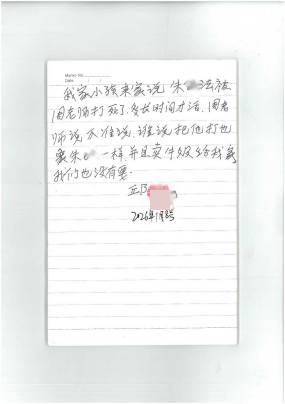 Memo No.
Date / /
我家小孩来家说 朱 法被
周老师打死了.多长时间才活.周老
师说不准说,谁说把他打也
象朱 一样并且卖件 给我家
我们也没有要.
2026年1月8号